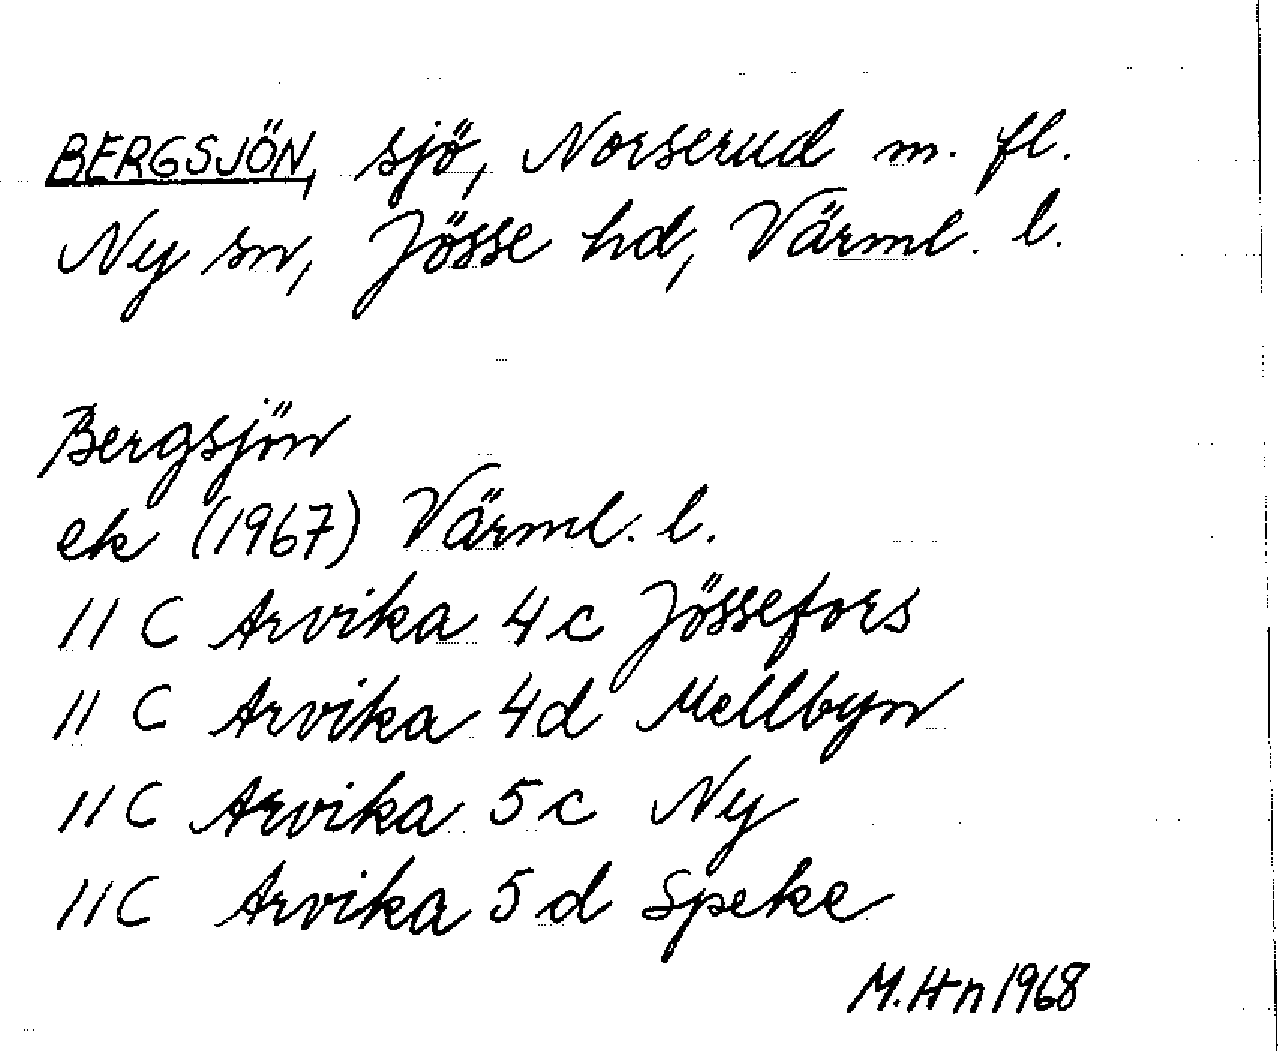 BERGSJÖN, sjö, Norserud m. fl.
Ny sn, Jösse hd, Värml. l.
Bergsjön
ek (1967) Värml. l.
11 C Arvika 4 c Jössefors
11 C Arvika 4d Mellbyn
11 C Arvika 5 c Ny
11 C Arvika 5 d Speke
M. Hn 1968